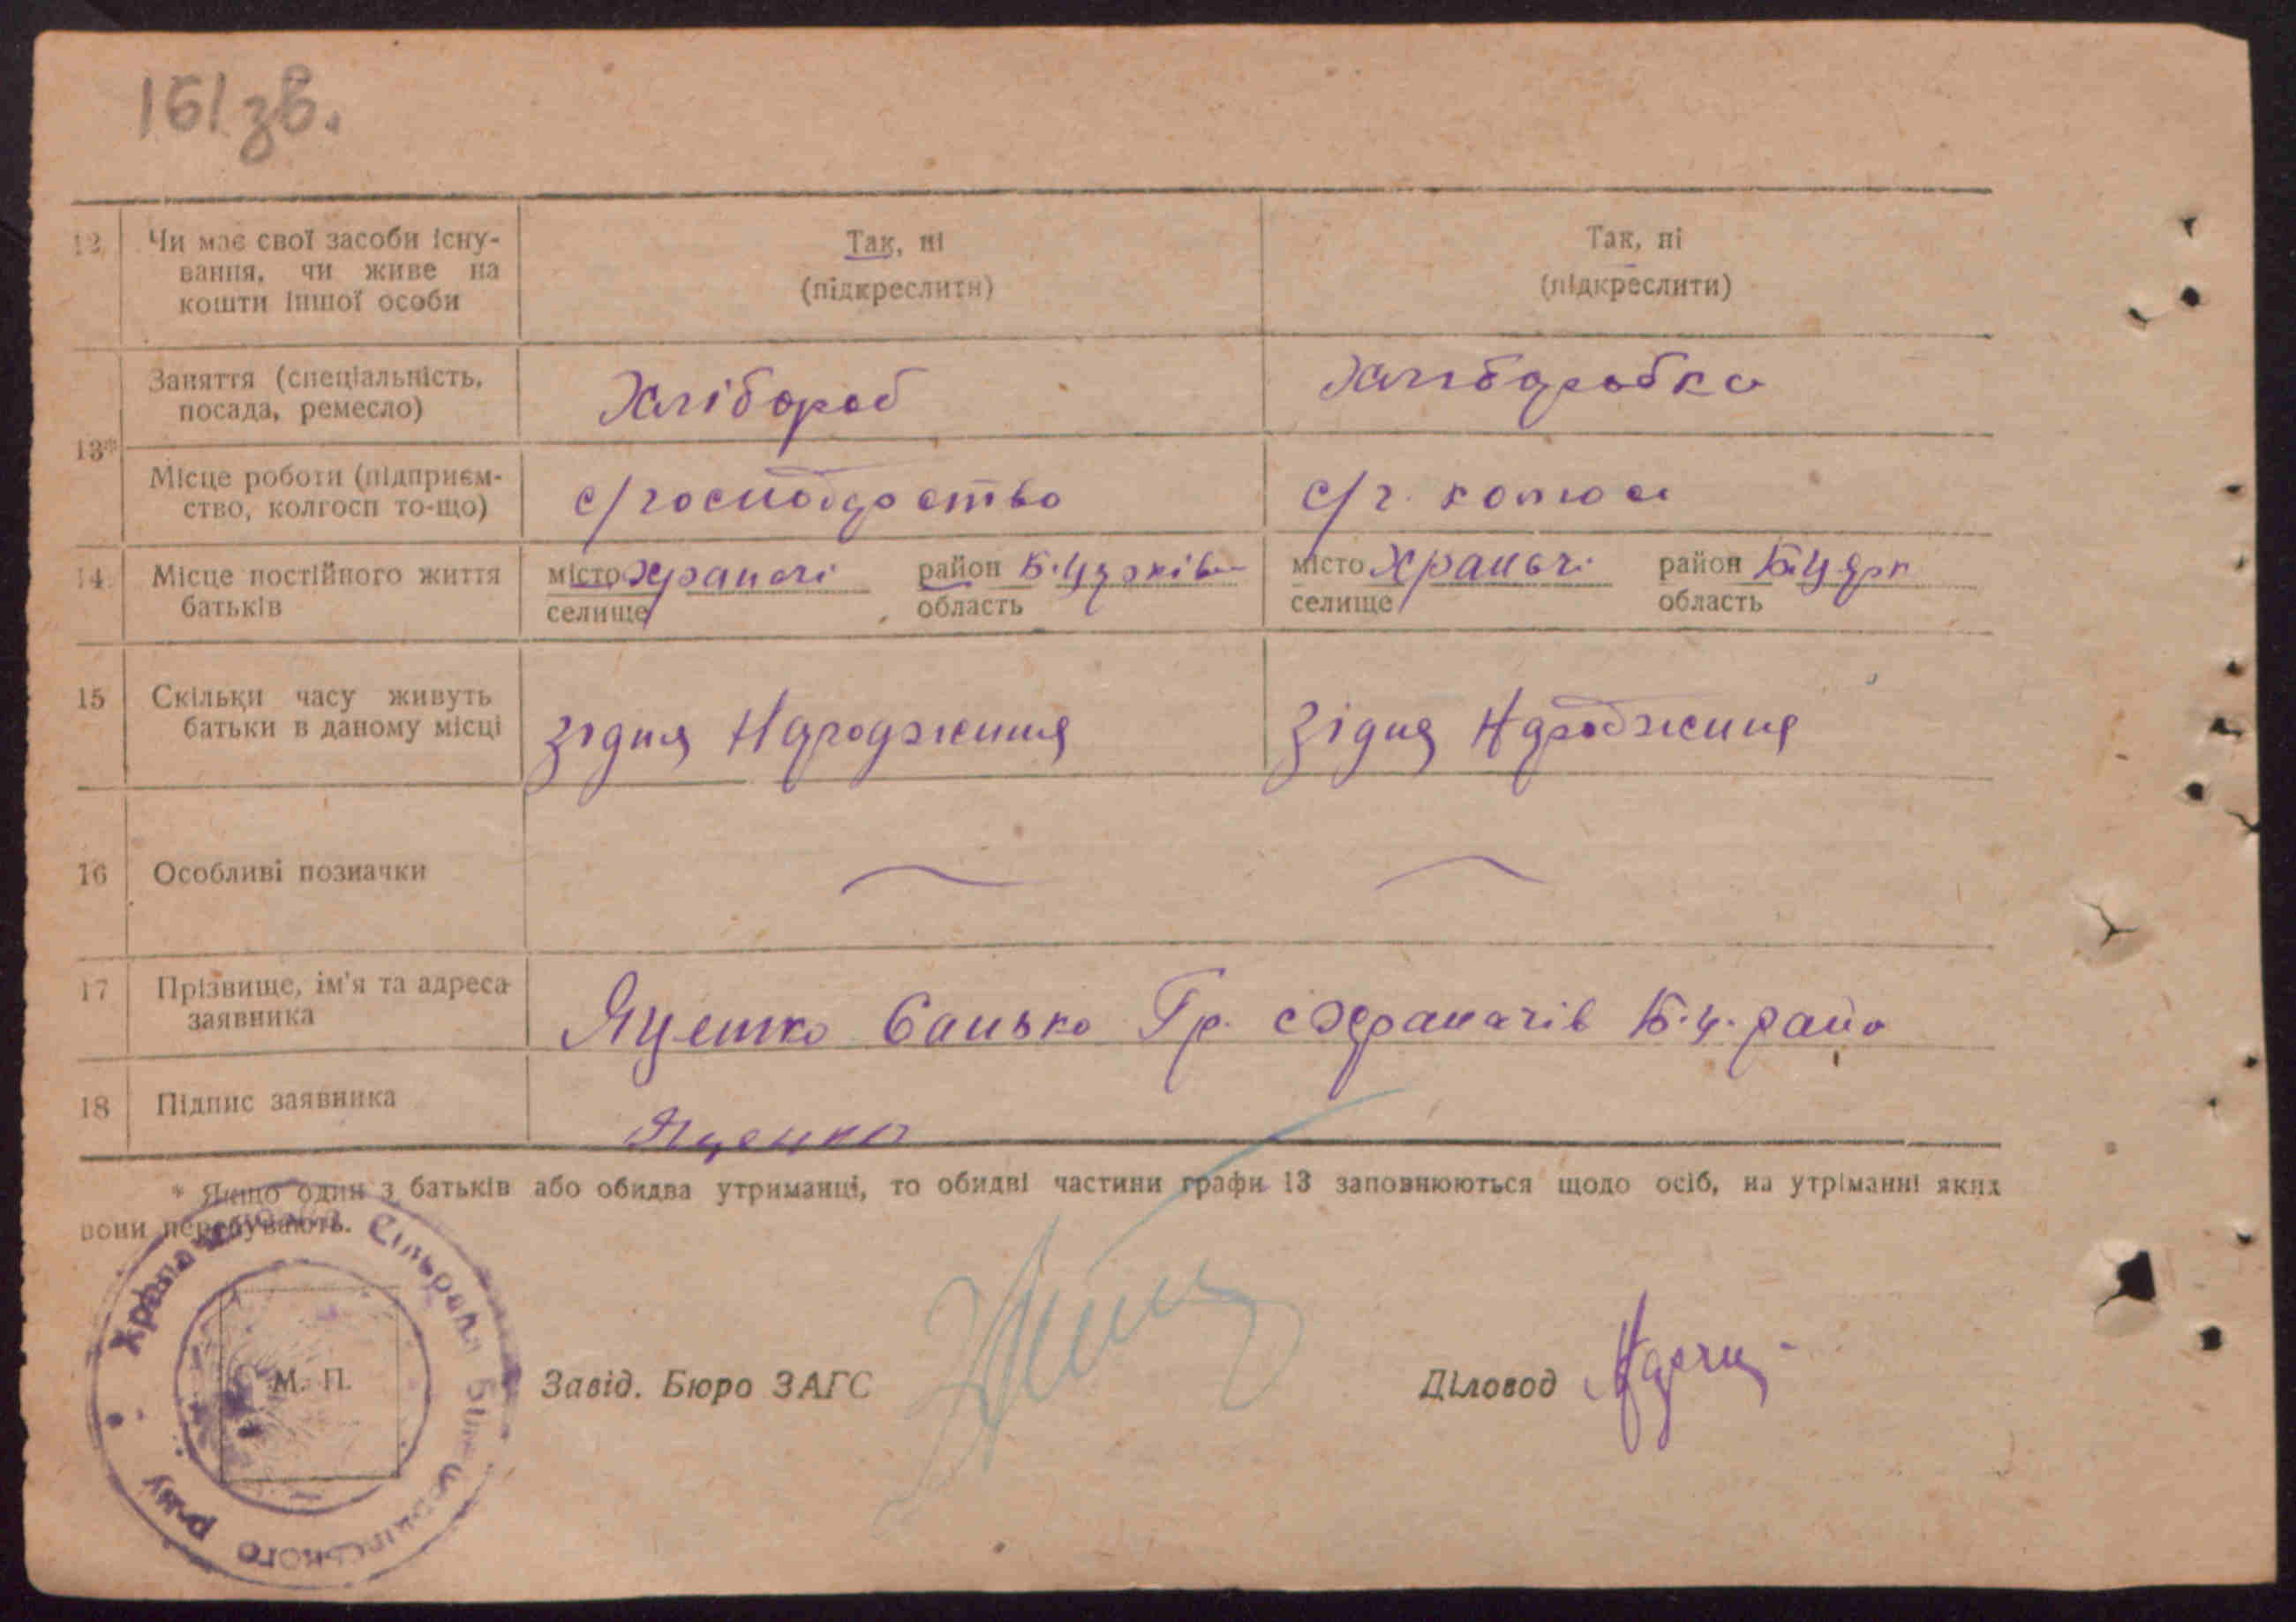 161 зв.
12 Чи має свої засоби існу-
вання, чи живе на
кошти іншої особи
Так, ні
(підкреслити)
Так, ні
(підкреслити)
13*
Заняття (спеціальність,
посада, ремесло)
Хлібороб
Хліборобка
Місце роботи (підприєм-
ство, колгосп то-що)
с/господарство
с/г.
14 Місце постійного життя
батьків
місто Храпачі район Б.Церків
селище область
місто Храпачі район Б.Церк
селище область
15 Скільки часу живуть
батьки в даному місці
Зідня Народження
Зідня Народження
16 Особливі позначки
17 Прізвище, ім'я та адреса
заявника
Яценко Санько Гр. с Храпачів Б.ц. райо
18 Підпис заявника
Яценко
* Якщо один з батьків або обидва утриманці, то обидві частини графи 13 заповнюються щодо осіб, на утріманні яких
вони перебувають.
Сільрада Біло-Церківського р-ну
М. П.
Завід. Бюро ЗАГС
Діловод